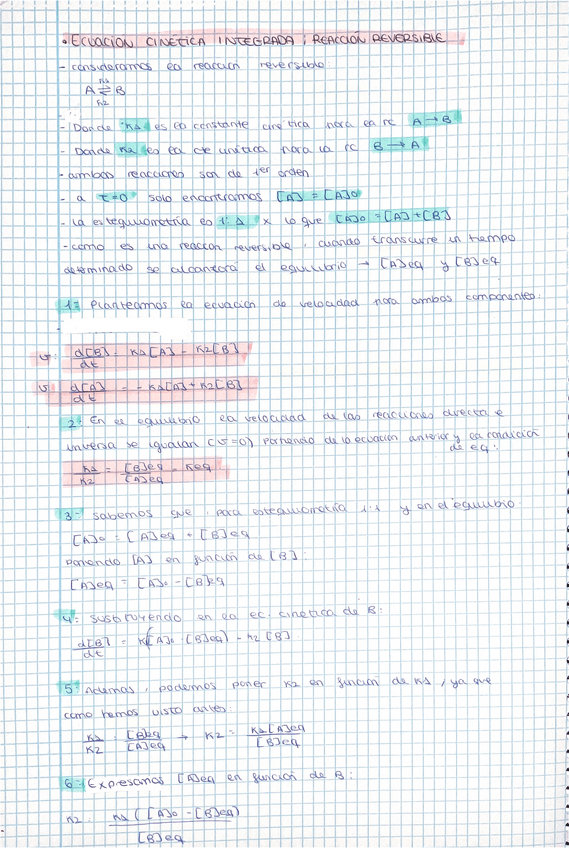 • ECUACIÓN CINÉTICA INTEGRADA: REACCIÓN REVERSIBLE
- consideramos la reacción reversible
K1
A ⇌ B
K2
- Donde K1 es la constante cinética para la rc A → B
- Donde K2 es la cte cinética para la rc B → A
- ambas reacciones son de 1er orden
- a t=0 solo encontramos [A] = [A]0
- La estequiometría es 1:1 x lo que [A]0 = [A] + [B]
- como es una reacción reversible, cuando transcurre un tiempo
determinado se alcanzará el equilibrio → [A]eq y [B]eq
1º Planteamos la ecuación de velocidad para ambos componentes:
v: d[B]/dt = K1[A] - K2[B]
v: d[A]/dt = - K1[A] + K2[B]
2º En el equilibrio la velocidad de las reacciones directa e
inversa se igualan (v=0) partiendo de la ecuación anterior y la condición
de eq:
K1/K2 = [B]eq/[A]eq = Keq
3º sabemos que, para estequiometría 1:1 y en el equilibrio:
[A]0 = [A]eq + [B]eq
poniendo [A] en función de [B]:
[A]eq = [A]0 - [B]eq
4º sustituyendo en la ec. cinética de B:
d[B]/dt = K1([A]0 - [B]eq) - K2 [B]
5º Además, podemos poner K2 en función de K1, ya que
como hemos visto antes:
K1/K2 = [B]eq/[A]eq → K2 = K1[A]eq/[B]eq
6º Expresamos [A]eq en función de B:
K2: K1([A]0 - [B]eq)/[B]eq